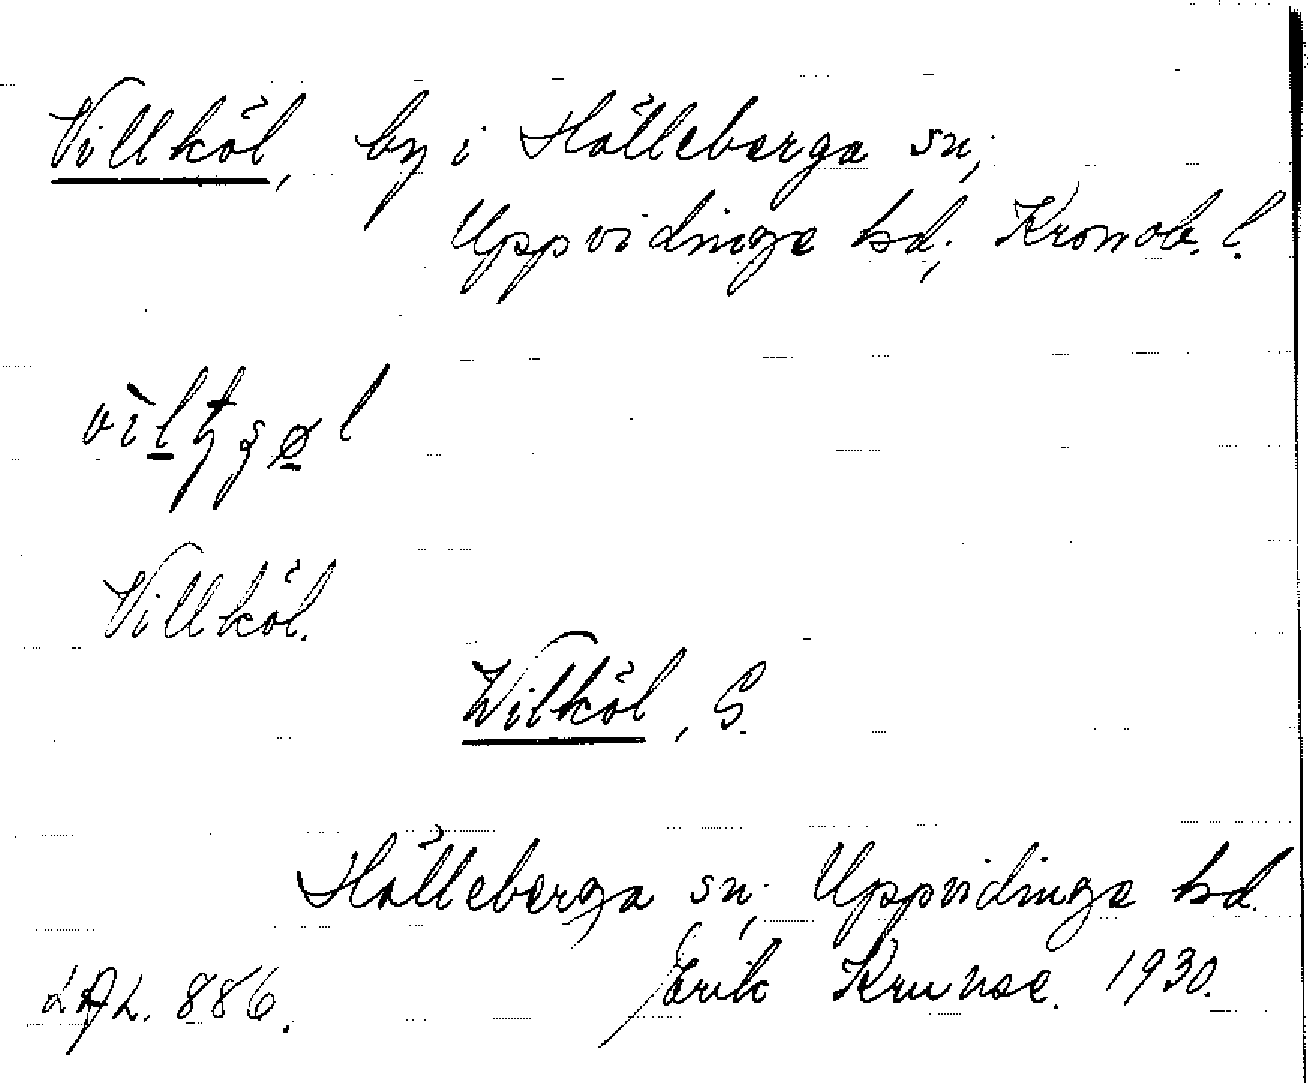 Villköl, by i Hälleberga sn,
Uppvidinge hd, Kronob. l.
Villköl.
Wilköl, S.
Hälleberga sn, Uppvidinge hd.
Erik Krunse. 1930.
LAL. 886.